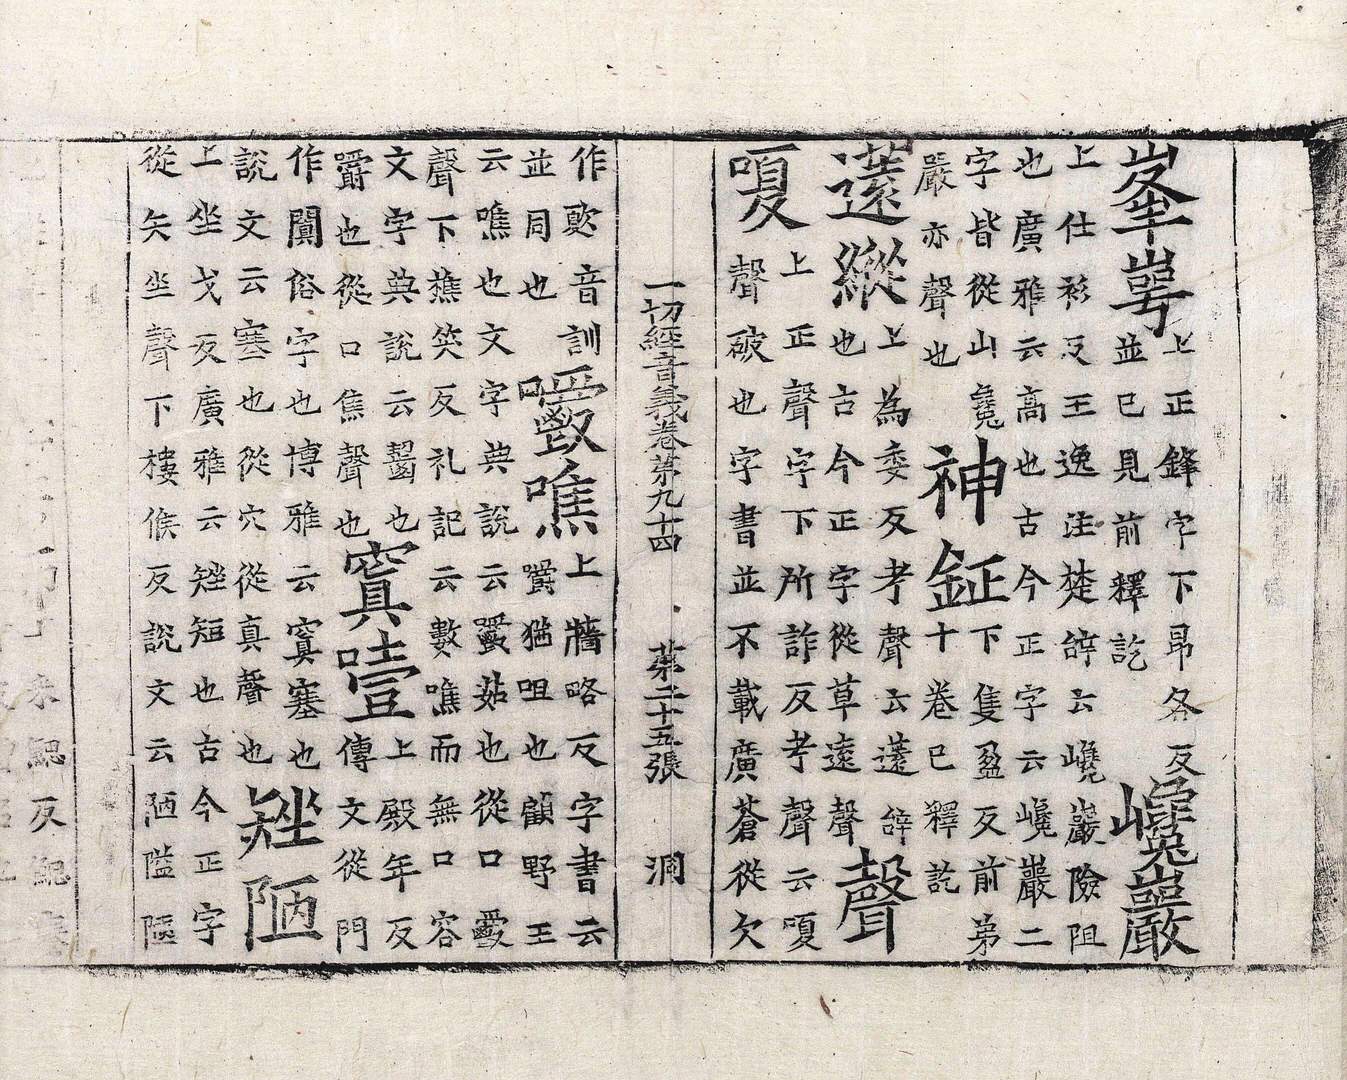 峯崿
上正鋒字下昂各反
並已見前釋訖
巉巖
上仕衫反王逸注楚辝云巉巖險阻
也廣雅云高也古今正字云巉巖二
字皆從山毚
嚴亦聲也
神鉦
下隻盈反前第
十卷已釋訖
薳縱
上為委反考聲云薳辝
也古今正字從草遠聲
聲
嗄
上正聲字下所詐反考聲云嗄
聲破也字書並不載廣蒼從欠
一切經音義卷第九十四 第二十五張 洞
作音訓
並同也
嚼噍
上牆略反字書云
嚼猶咀也顧野王
云噍也文字典說云嚼茹也從口爵
聲下樵笑反礼記云數噍而無口容
文字典說云齧也
嚼也從口焦聲也
窴噎
上殿年反
傳文從門
作闐俗字也博雅云窴塞也
說文云塞也從穴從真聲也
矬陋
上坐戈反廣雅云矬短也古今正字
從矢坐聲下樓候反說文云陋隘陋